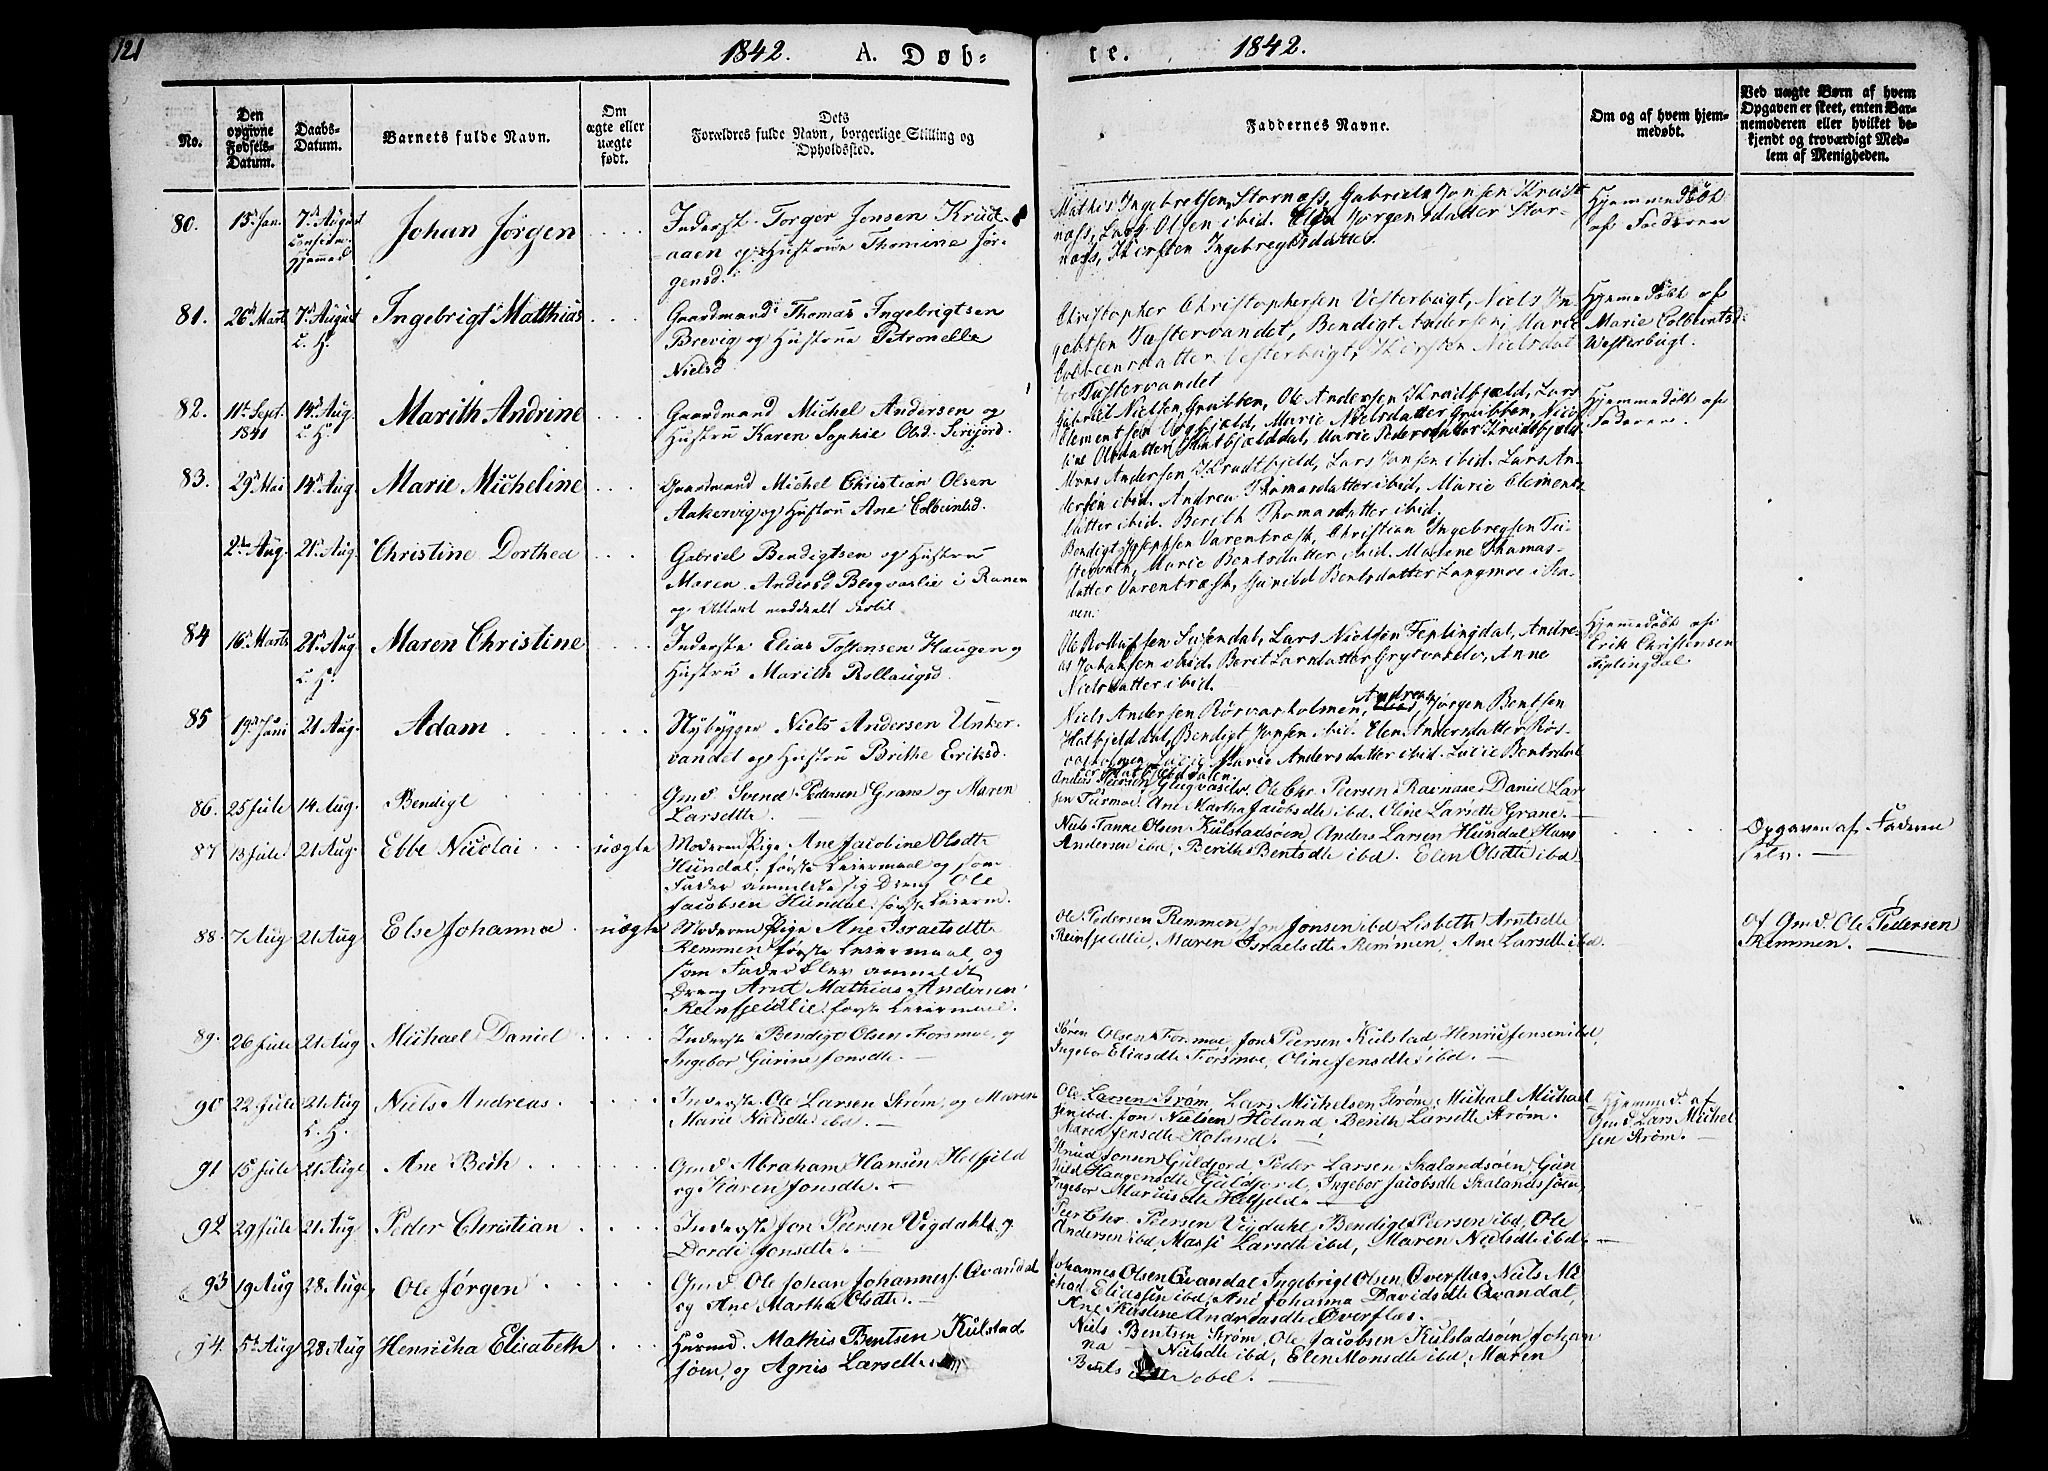 121
1842. A. Døb- te. 1842.
No.
Den opgivne Fødsels-Datum.
Daabs-Datum.
Barnets fulde Navn.
Om ægte eller uægte født.
Dets Forældres fulde Navn, borgerlige Stilling og Opholdssted.
Faddernes Navne.
Om og af hvem hjemmedøbt.
Ved uægte Børn af hvem Opgaven er skeet, enten Barnemoderen eller hvilket bekjendt og troværdigt Medlem af Menigheden.
80. 15 Jan. 7 August Johan Jørgen
Inderst Torger Jonsen Krud-
aaen og Hustrue Thomine Jør-
gensd:
Mathis Ingebretsen Stornæss, Gabriel Jonsen
næss, Lars Olsen ibid. Elen Jørgensdatter Stor-
næss, Kirsten Ingebregtsdatter.
Hjemmedøbt
af Faderen
81. 26 Marts 7 August C. H. Ingebrigt Matthias
Gaardmand Thomas Ingebrigtsen
Brevig og Hustrue Petronelle
Nielsd
Christopher Christophersen Vesterbugt, Niels In-
gebtsen Tustervandet, Bendigt Andersen, Marie
Colbeensdatter Vesterbugt, Kirsten Nielsdat
ter Tustervandet
Hjemmedøbt af
Marie Colbeintsd:
Westerbugt.
82. 11 Sept. 1841 14 Aug. C. H. Marith Andrine
Gaardmand Michel Andersen og
Hustru Karen Sophie Olsd.
Gabriel Nielsen Grubben, Ole Andersen Krudtfjeld, Lars
Clementsen Marie Nielsdatter Grubben, Nico
line Olsdatter Marie Pedersdatter Krudtfjeld
Hjemmedøbt af
Faderen.
83. 29 Mai 14 Aug. Marie Micheline
Gaardmand Michel Christian Olsen
Aakervig og Hustru Ane Colbeinsd.
Mons Andersen Krudtfjeld, Lars Jonsen ibid. Lars An-
dersen ibid. Andrea Thomasdatter ibid, Marie Clements
datter ibid. Berith Thomasdatter ibid.
2 Aug. 21 Aug. Christine Dorthea
Gabriel Bendigtsen og Hustrue
Maren Andersd Bergvaslie i Ranen
og Attest meddeelt dertil
Bendigt Josephsen Varentræsk, Christian Ingebregsen Tu-
stervatn, Marie Bentsdatter ibid. Marene Thomas-
datter Varentræsk, Gunild Bentsdatter Langmoe i Ra-
nen.
84 16 Marts 21 Aug. C. H. Maren Christine
Inderste Elias Tostensen Haugen og
Hustru Marith Rollaugsd.
Ole Susendal, Lars Nielsen Feplingdal, Andre-
as Johansen ibid. Berit Larsdatter Anne
Nielsdatter ibid.
Hjemmedøbt af
Erik Christensen
Feplingdal
85 19 Juni 21 Aug. Adam
Nybygger Niels Andersen Unker-
vandet og Hustrue Brithe Eriksd.
Niels Andersen Rørvasholmen, Andreas Jørgen Bentsen
Hatfjelddal, Bendigt Jonsen ibid. Elen Andersdatter Røs-
vasholmen Marie Andersdatter ibid. Lucie Bentsdat
ter Hatfjelddalen.
86. 25 Jule 14 Aug. Bendigt
Gmd. Svend Pedersen Grane og Maren
Larsdtte.
Anders Peersen Ole Chr. Peersen Ravnaae Daniel Lar-
sen Turmoe, Ane Martha Jacobsdtte ibd. Oline Larsdtte Grane.
87 13 Jule 21 Aug. Ebbe Nicolai uægte
Moderen Pige Ane Jacobine Olsdtte
Hundal. første Leiermaal og som
Fader anmeldte sig Dreng Ole
Jacobsen Hundal. første Leierm.
Niels Tanne Olsen Kulstadsøen, Anders Larsen Hundal Hans
Andersen ibd, Berith Bentsdtte ibd. Elen Olsdtte ibd
Opgaven af Faderen
selv.
88. 7 Aug 21 Aug Else Johanna uægte
Moderen Pige Ane Israelsdtte
Remmen første Leiermaal, og
som Fader blev anmeldt
Dreng Arnt Mathias Andersen
Reinfjeldlie. første Leiermaal.
Ole Pedersen Remmen Jon Jonsen ibd Lisbeth Arntsdtte
Reinfjeldlie, Maren Israelsdte Remmen, Ane Larsdtte ibd.
Af Gmd. Ole Pedersen
Remmen.
89. 26 Jule 21 Aug Michael Daniel
Inderste Bendigt Olsen Forsmoe, og
Ingebor Gurine Jonsdte.
Søren Olsen Forsmoe, Jon Peersen Kulstad Henric Jonsen ibd,
Ingebor Eliasdte Forsmoe, Oline Jensdte ibd.
90 22 Jule 21 Aug C. H. Niels Andreas.
Inderste Ole Larsen Strøm, og Maren
Marie Nielsdte ibd.
Ole Larsen Strøm Lars Michelsen Strøm, Michael Michael
sen ibd. Jon Nielsen Holand Berith Larsdtte Strøm.
Maren Jensdte Holand.
Hjemmed. af
Gmd. Lars Michel
sen Strøm.
91 15 Jule 21 Augt Ane Beth
Gmd Abraham Hansen Helfjeld
og Karen Jonsdte.
Knud Jonsen Guldfjord, Peder Larsen Skalandsøen, Gun
nild Haagensdte Guldfjord, Ingebor Jacobsdte Skalandssøen,
Ingebor Marcusdte Helfjeld.
92 29 Jule 21 Aug Peder Christian
Inderste Jon Peersen Vigdahl og
Dordi Jonsdte.
Peer Chr. Peersen Vigdahl, Bendigt Peersen ibd, Ole
Andersen ibd, Massi Larsdte ibd, Maren Nielsdte ibd.
93 19 Aug 28 Aug Ole Jørgen
Gmd Ole Johan Johanness. Qvandal
og Ane Martha Olsdte.
Johannes Olsen Qvandal Ingebrigt Olsen Øverflas, Niels Mi
chael Eliassen ibd, Ane Johanna Davidsdte Qvandal,
Ane Kirstine Andreasdte Øverflas.
94. 5 Aug 28 Aug Henricha Elisabeth
Huusmd. Mathis Bentsen Kulstad
søen, og Agnis Larsdtte
Niels Bentsen Strøm, Ole Jacobsen Kulstadsøen Johan
na Nielsdte ibd, Elen Monsdte ibd, Maren
Bents ibd.